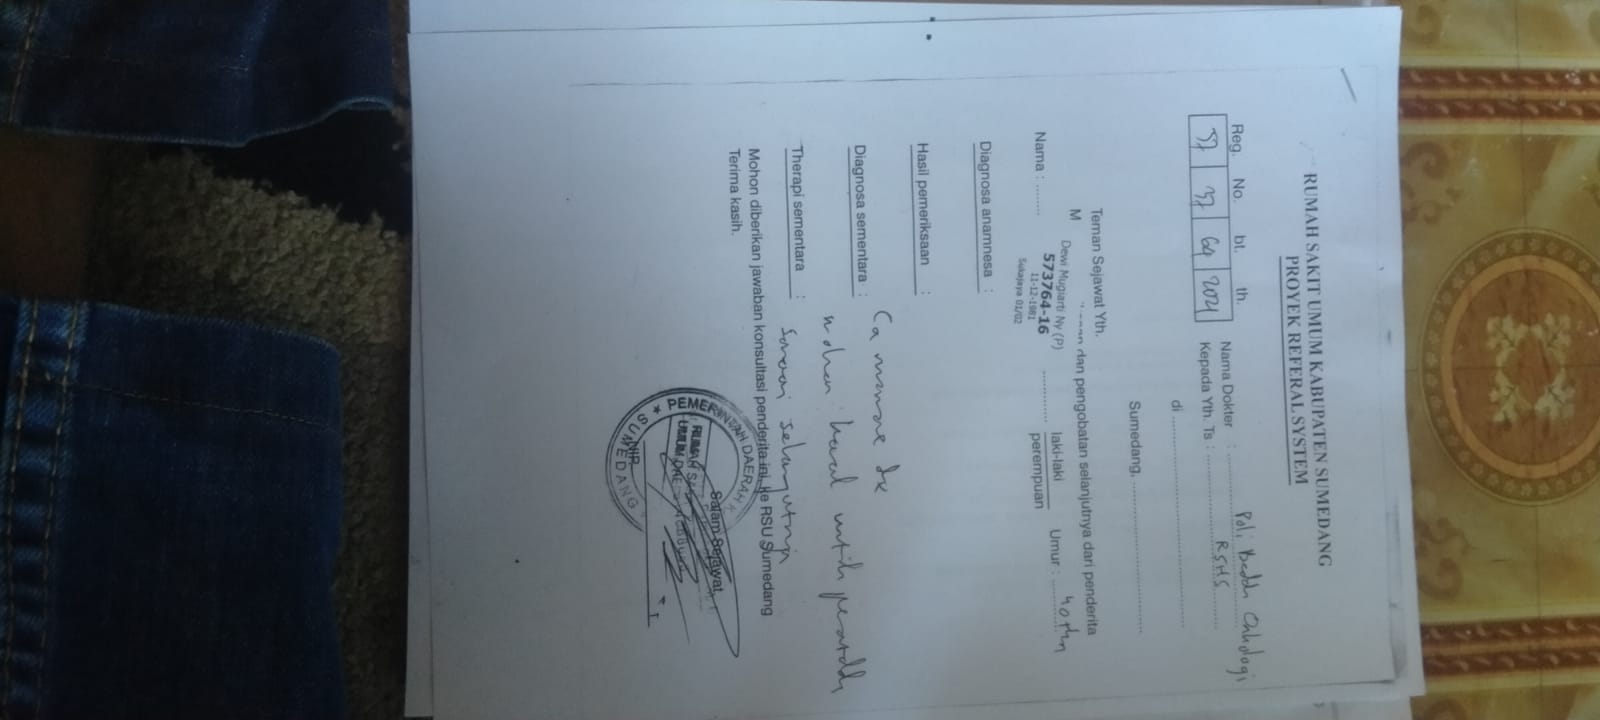 RUMAH SAKIT UMUM KABUPATEN SUMEDANG
PROYEK REFERAL SYSTEM
Reg. No. bt. th.
64 2021
Nama Dokter : Poli Bedah Onkologi
Kepada Yth. Ts : RSHS
di
Sumedang,
Teman Sejawat Yth.
M dan pengobatan selanjutnya dari penderita
Dewi Mugiarti Ny (P)
573764-16
11-12-1981
Sukajaya 01/02
Nama : laki-laki perempuan Umur : 40 thn
Diagnosa anamnesa :
Hasil pemeriksaan :
Diagnosa sementara : Ca mamae
mohon untuk
Therapi sementara : selanjutnya
Mohon diberikan jawaban konsultasi penderita ini, ke RSU Sumedang
Terima kasih.
Salam Sejawat,
PEMERINTAH DAERAH K
RUMAH SA
UMUM DAE
NIP.
SUMEDANG